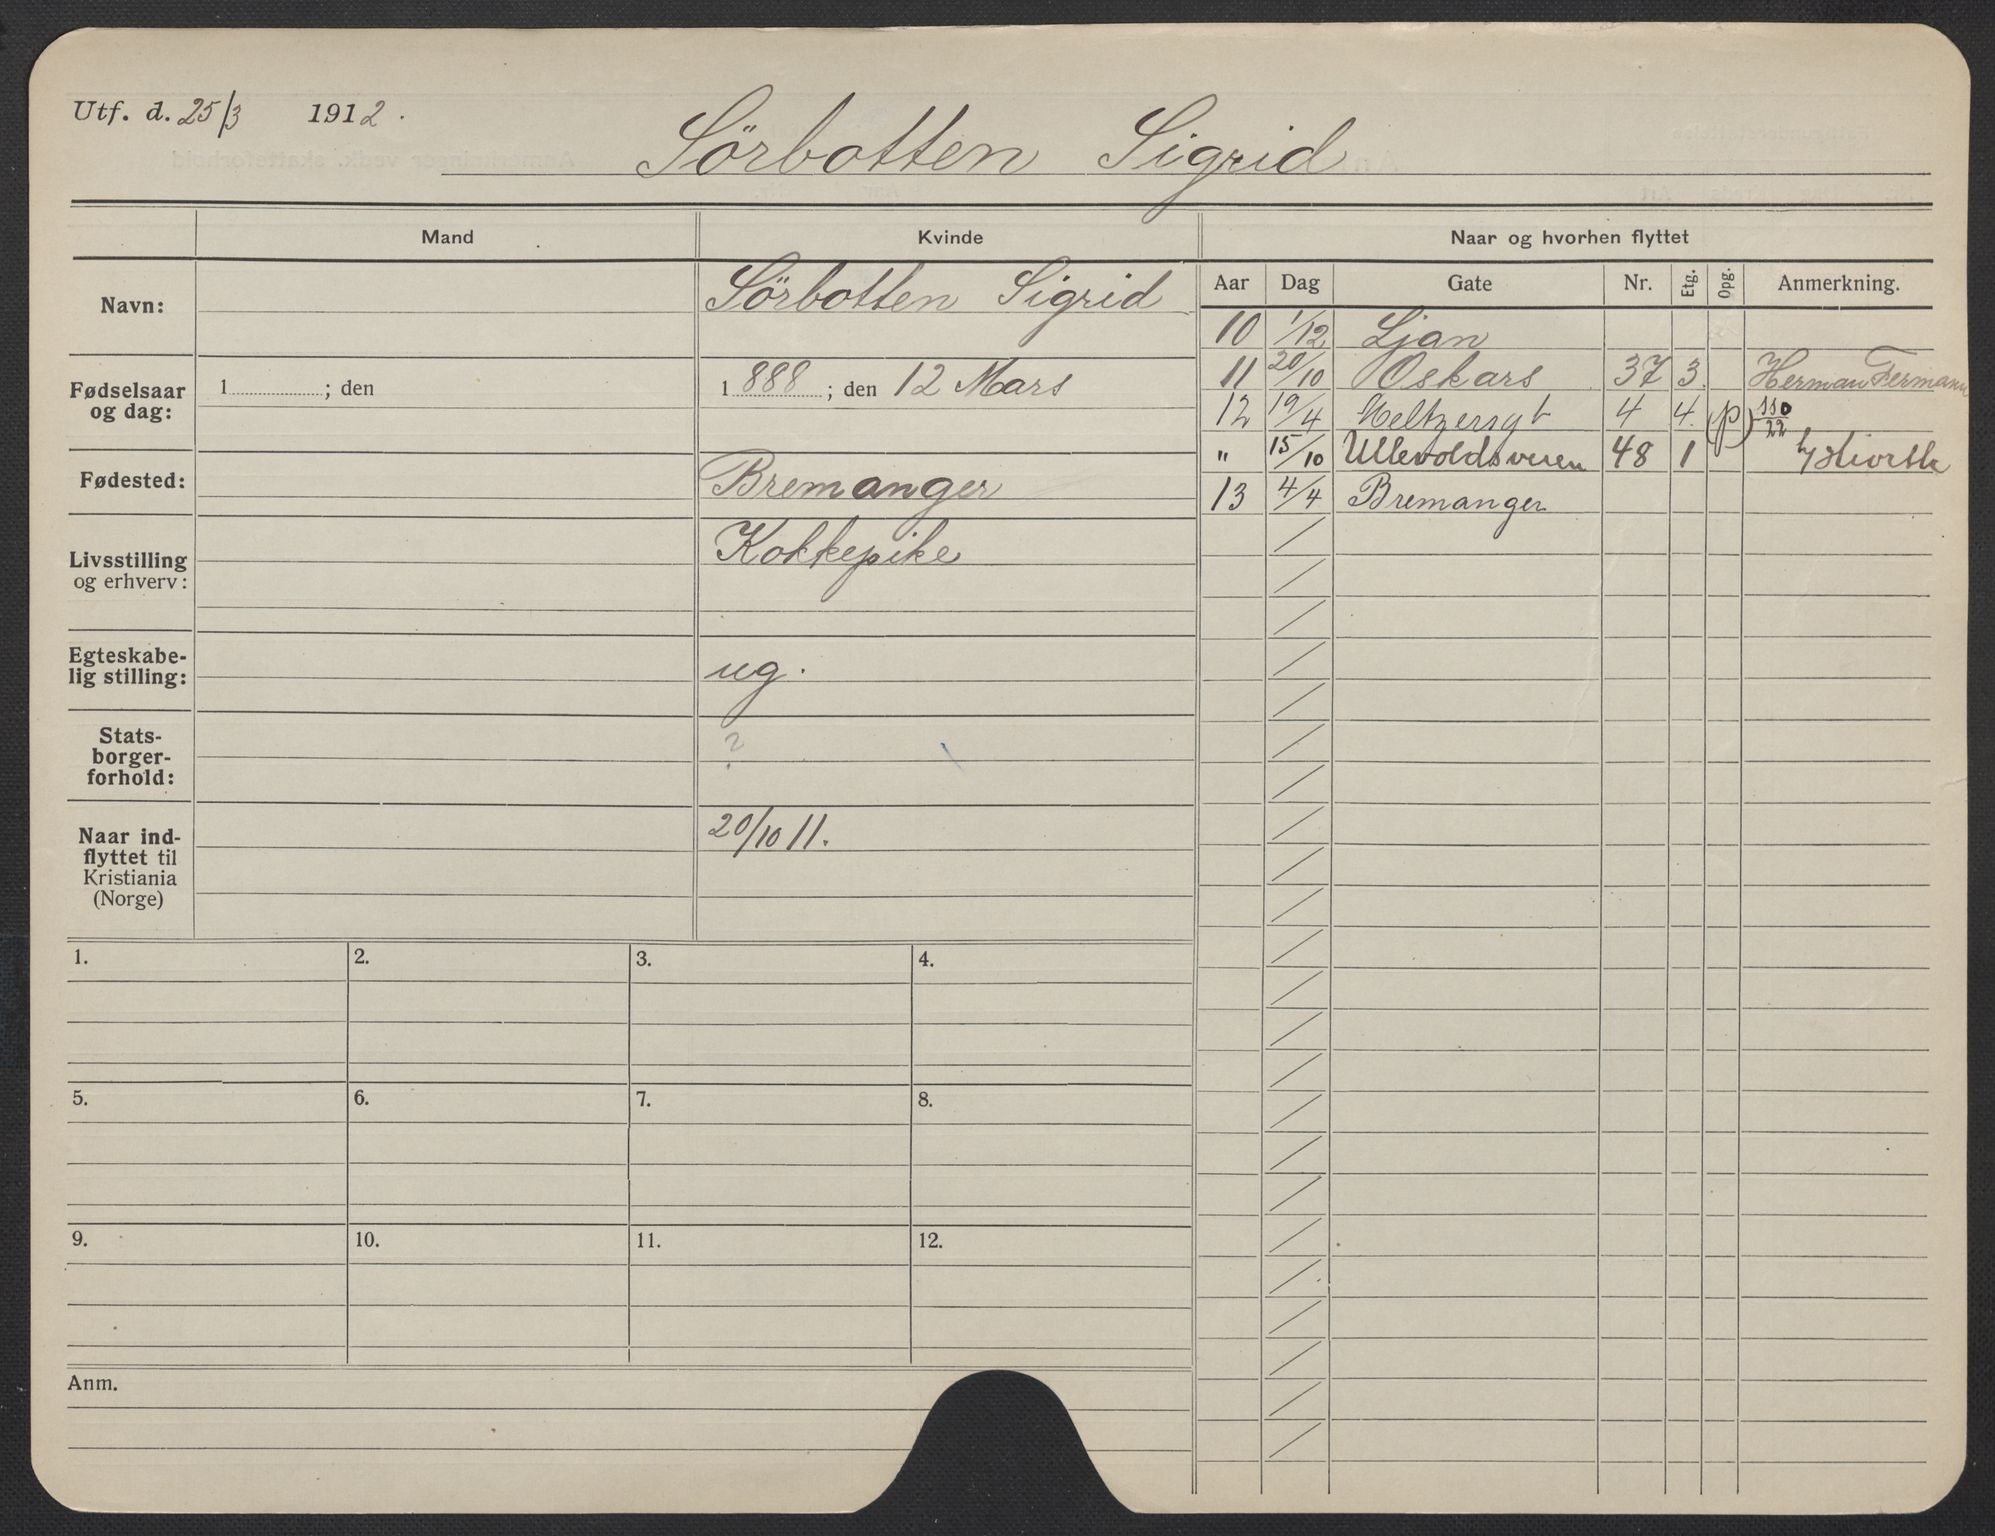 Utf. d. 25/3 1912.
Sörbotten Sigrid
Mand
Kvinde
Naar og hvorhen flyttet
Navn:
Sörbotten Sigrid
Fødselsaar og dag:
1 ; den
1 888 ; den 12 Mars
Fødested:
Bremanger
Livsstilling og erhverv:
Kokkepike
Egteskabe-
lig stilling:
ug.
Stats-
borger-
forhold:
?
Naar ind-
flyttet til
Kristiania
(Norge)
20/10 11.
Aar Dag Gate Nr. Etg. Opg. Anmerkning.
10 1/12 Ljan
11 20/10 Oskars 37 3 Herman Fermann
12 19/4 Meltzersgt 4 4. (p) 110/22
" 15/10 Ullevoldsveien 48 1 h/Hiorth
13 4/4 Bremanger
1. 2. 3. 4.
5. 6. 7. 8.
9. 10. 11. 12.
Anm.